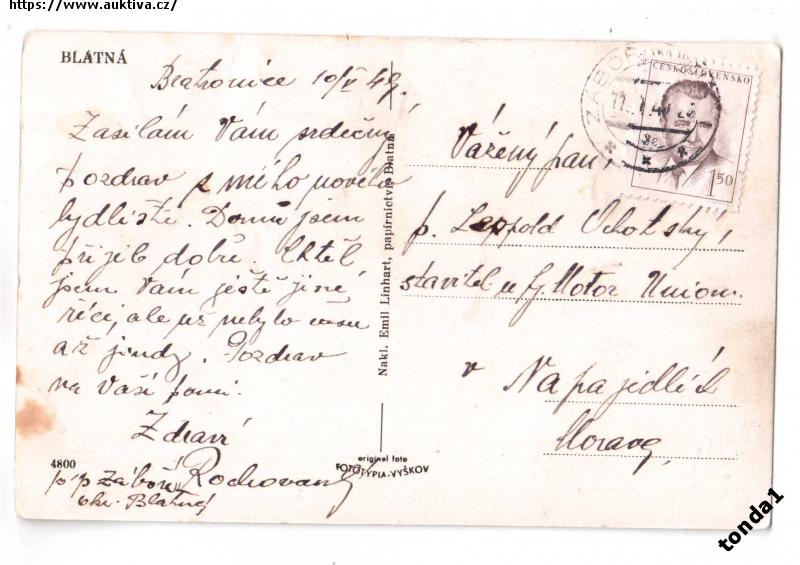 https://www.auktiva.cz/
BLATNÁ
Bratronice 10/V 49.
Zasílám Vám srdečný
pozdrav z mého nového
bydliště. Domů jsem
přijel dobře. Chtěl
jsem Vám ještě jiné
říci, ale už nebylo času
až jindy. Pozdrav
na Vaší paní.
Zdraví
Rochovanský
4800
p/p Záboří
okr. Blatná
Nakl. Emil Linhart, papírnictví, Blatná
original foto
FOTOTYPIA-VYŠKOV
ČESKOSLOVENSKO
1.50
Vážený pan,
p. Leopold Ochotský,
stavitel u fy. Motor Union.
v Napajedlích
Morava,
tonda1